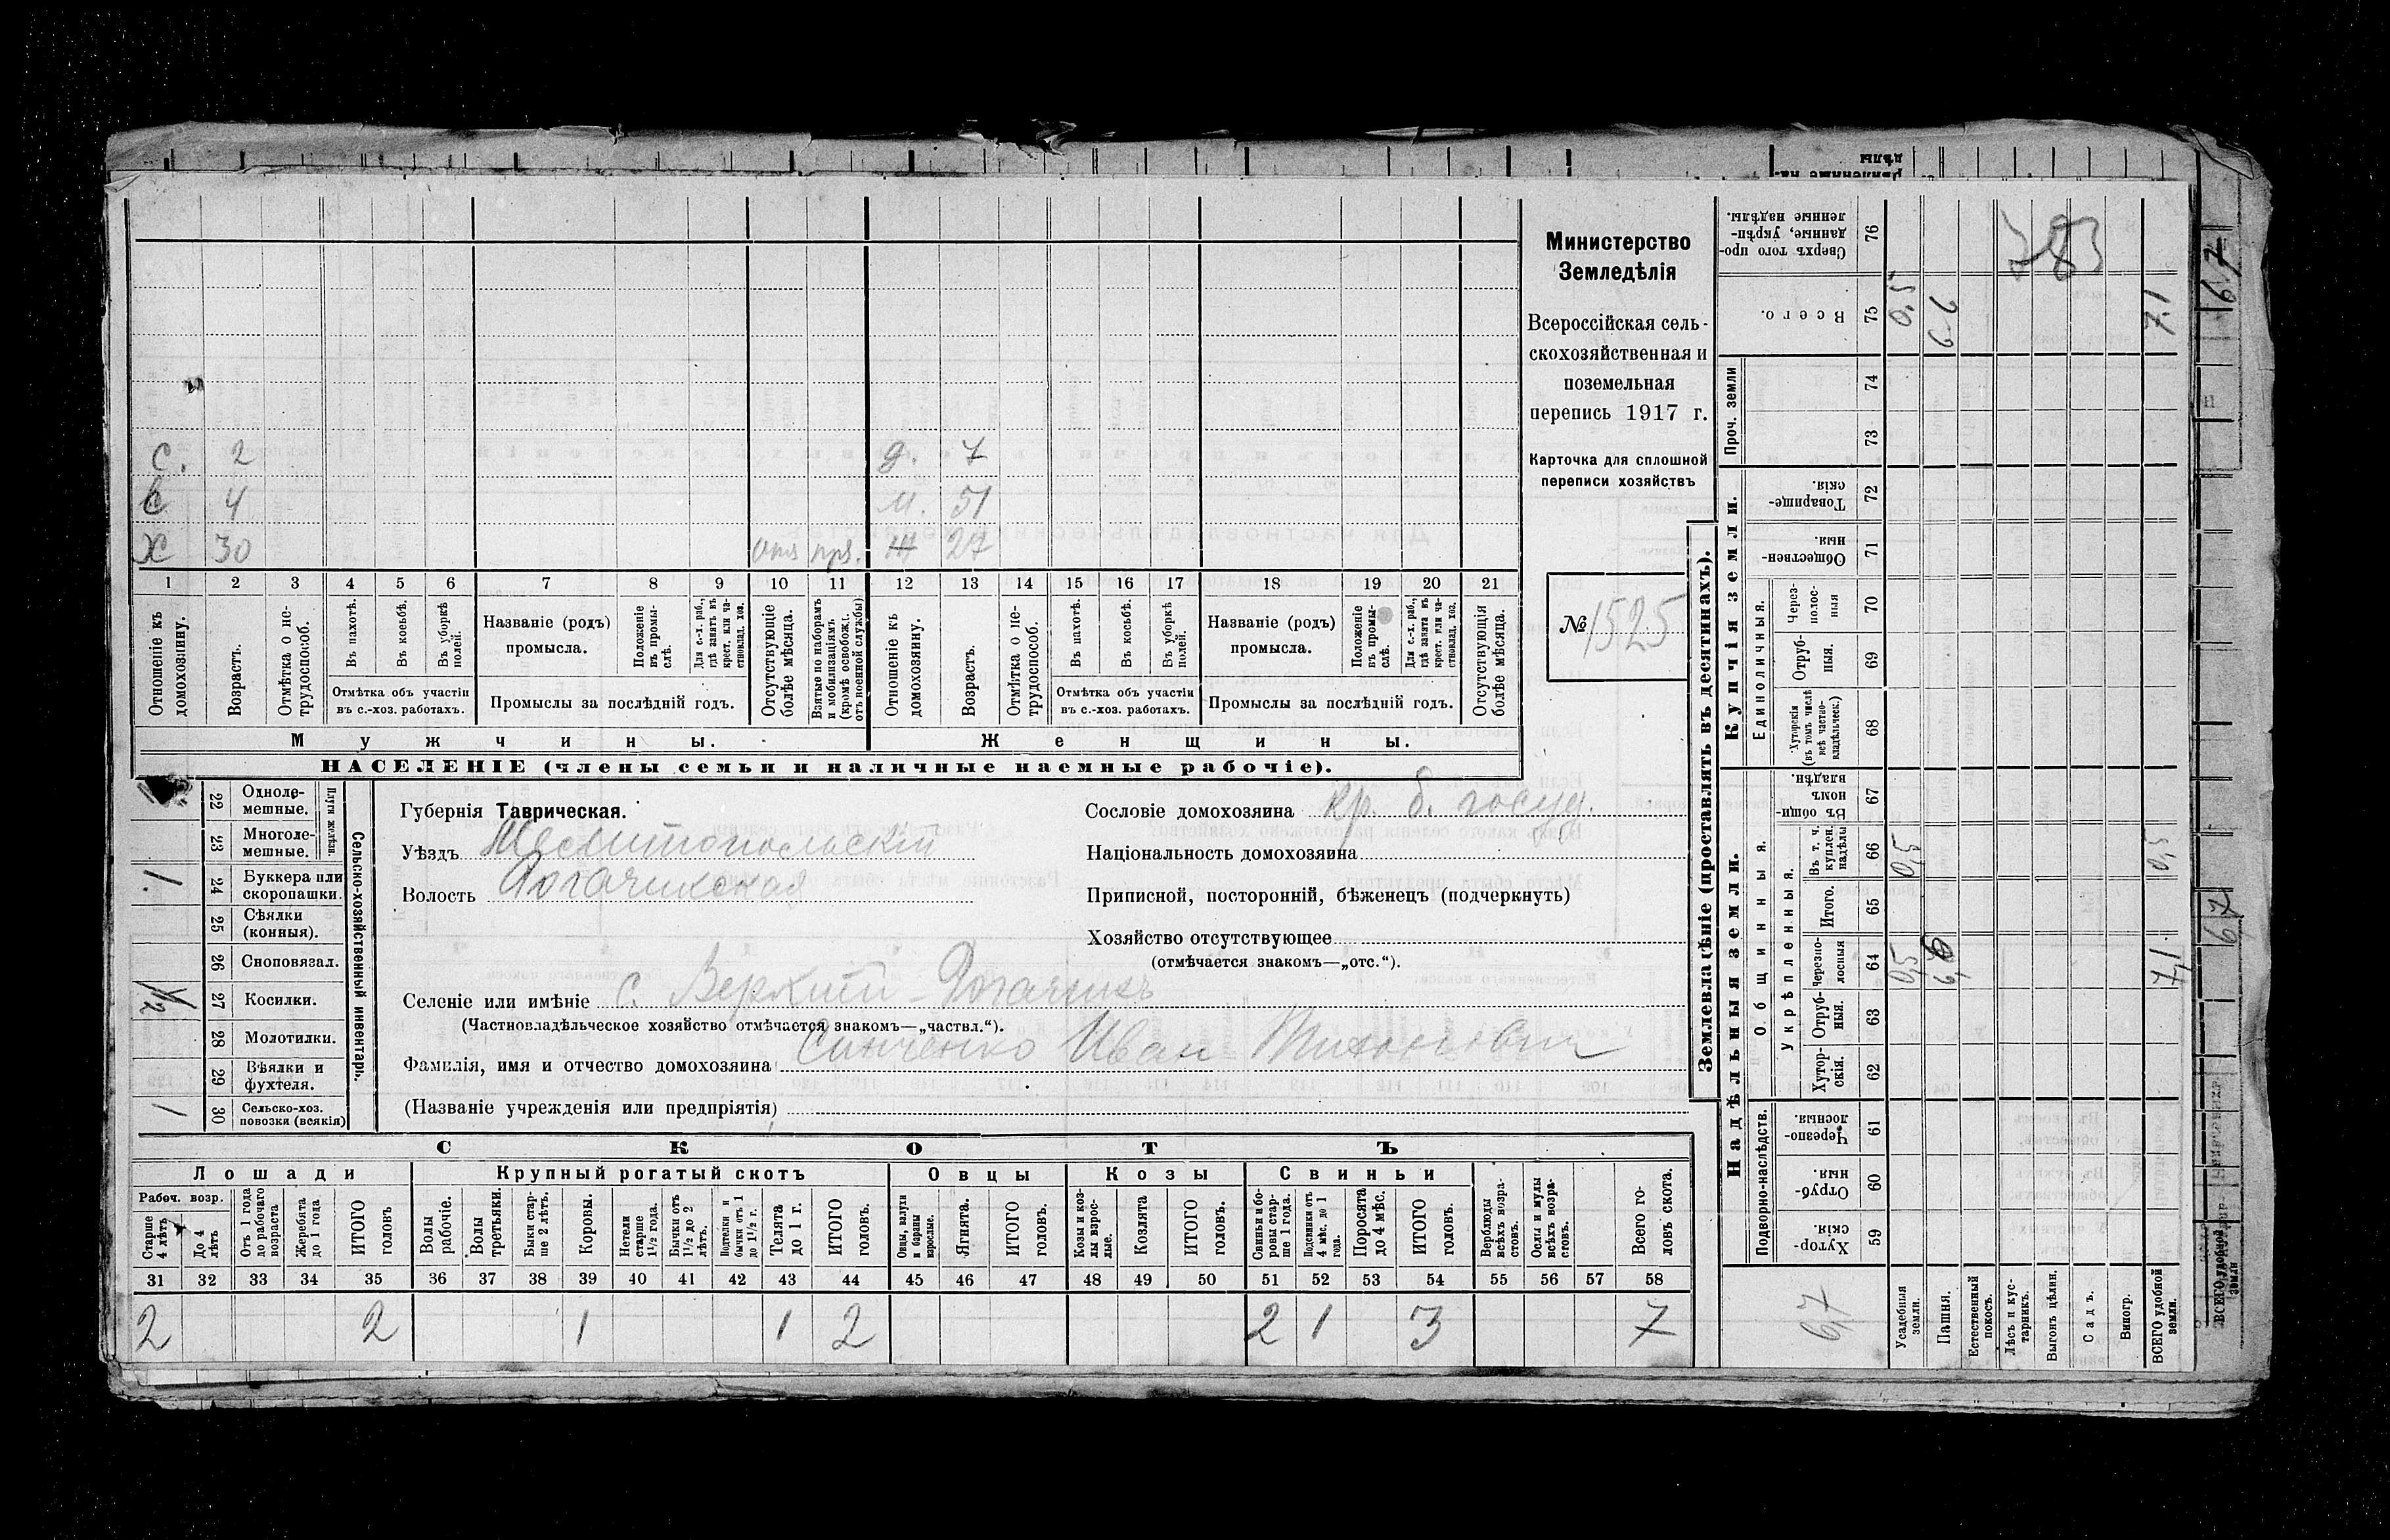 С. 2 д. 7
С 4 м. 51
Х 30 отс приз. ж 27
1 2 3 4 5 6 7 8 9 10 11 12 13 14 15 16 17 18 19 20 21
Отношеніе къ домохозяину.
Возрастъ.
Отмѣтка о нетрудоспособ.
Въ пахотѣ.
Въ косьбѣ.
Въ уборкѣ полей.
Отмѣтка объ участіи
въ с.-хоз. работахъ.
Названіе (родъ)
промысла.
Положеніе въ промыслѣ.
Для с.-х. раб., гдѣ занятъ въ крест. или частновлад. хоз.
Промыслы за послѣдній годъ.
Отсутствующіе болѣе мѣсяца.
Взятые по наборамъ и мобилизаціямъ (кромѣ освобожд. отъ военной службы)
Отношеніе къ домохозяину.
Возрастъ.
Отмѣтка о нетрудоспособ.
Въ пахотѣ.
Въ косьбѣ.
Въ уборкѣ полей.
Отмѣтка объ участіи
въ с.-хоз. работахъ.
Названіе (родъ)
промысла.
Положеніе въ промыслѣ.
Для с.-х. раб., гдѣ занята въ крест. или частновлад. хоз.
Промыслы за послѣдній годъ.
Отсутствующія болѣе мѣсяца.
Мужчины. Женщины.
НАСЕЛЕНІЕ (члены семьи и наличные наемные рабочіе).
Министерство
Земледѣлія
Всероссійская сель-
скохозяйственная и
поземельная
перепись 1917 г.
Карточка для сплошной
переписи хозяйствъ
№ 1525
Сельско-хозяйственный инвентарь.
Плуги желѣзн.
22 Одноле-
мешные.
23 Многоле-
мешные.
1 24 Буккера или
скоропашки.
25 Сѣялки
(конныя).
26 Сноповязал.
1/2 27 Косилки.
28 Молотилки.
29 Вѣялки и
фухтеля.
1 30 Сельско-хоз.
повозки (всякія)
Губернія Таврическая.
Уѣздъ Мелитопольскій
Волость Рогачикская
Селеніе или имѣніе с. Верхній Рогачикъ
(Частновладѣльческое хозяйство отмѣчается знакомъ—„частвл.“).
Фамилія, имя и отчество домохозяина Синченко Иван Тихонович
(Названіе учрежденія или предпріятія)
Сословіе домохозяина кр. б. госуд.
Національность домохозяина
Приписной, посторонній, бѣженецъ (подчеркнуть)
Хозяйство отсутствующее
(отмѣчается знакомъ—„отс.“).
СКОТЪ
Лошади Крупный рогатый скотъ Овцы Козы Свиньи
Рабоч. возр.
Старше 4 лѣтъ
До 4 лѣтъ
Отъ 1 года до рабочаго возраста
Жеребята до 1 года
ИТОГО головъ
Волы рабочіе.
Волы третьяки.
Быки старше 2 лѣтъ.
Коровы.
Нетели старше 1½ года.
Бычки отъ 1½ до 2 лѣтъ.
Подтелки и бычки отъ 1 до 1½ г.
Телята до 1 г.
ИТОГО головъ.
Овцы, валухи и бараны взрослые.
Ягнята.
ИТОГО головъ.
Козы и козлы взрослые.
Козлята
ИТОГО головъ.
Свиньи и боровы старше 1 года.
Подсвинки отъ 4 мѣс. до 1 года.
Поросята до 4 мѣс.
ИТОГО головъ.
Верблюды всѣхъ возрастовъ.
Ослы и мулы всѣхъ возрастовъ.
Всего головъ скота.
31 32 33 34 35 36 37 38 39 40 41 42 43 44 45 46 47 48 49 50 51 52 53 54 55 56 57 58
2 2 1 1 2 2 1 3 7
Землевладѣніе (проставлять въ десятинахъ).
Надѣльныя земли. Купчія земли. Проч. земли
Подворно-наслѣдств.
Общинныя.
Укрѣпленныя.
Единоличныя.
Хуторскія. 59
Отрубныя. 60
Черезполосныя. 61
Хуторскія. 62
Отрубныя. 63
Черезполосныя 64 0,5 7,1
Итого. 65
Въ т. ч. куплен. надѣлы 66 0,5 0,5
Въ общинномъ владѣн. 67
Хуторскія (въ томъ числѣ всѣ частновладѣльческ.) 68
Отрубныя. 69
Черезполосныя 70
Общественныя. 71
Товарищескія. 72
73
74
Всего. 75 0,5 6-6 7.1
Сверхъ того проданные, укрѣпленные надѣлы. 76
283
6,7
Усадебныя земли.
Пашня.
Естественный покосъ.
Лѣсъ и кустарникъ.
Выгонъ цѣлин.
Садъ.
Виногр.
ВСЕГО удобной земли.
67
67
ВСЕГО удобной земли